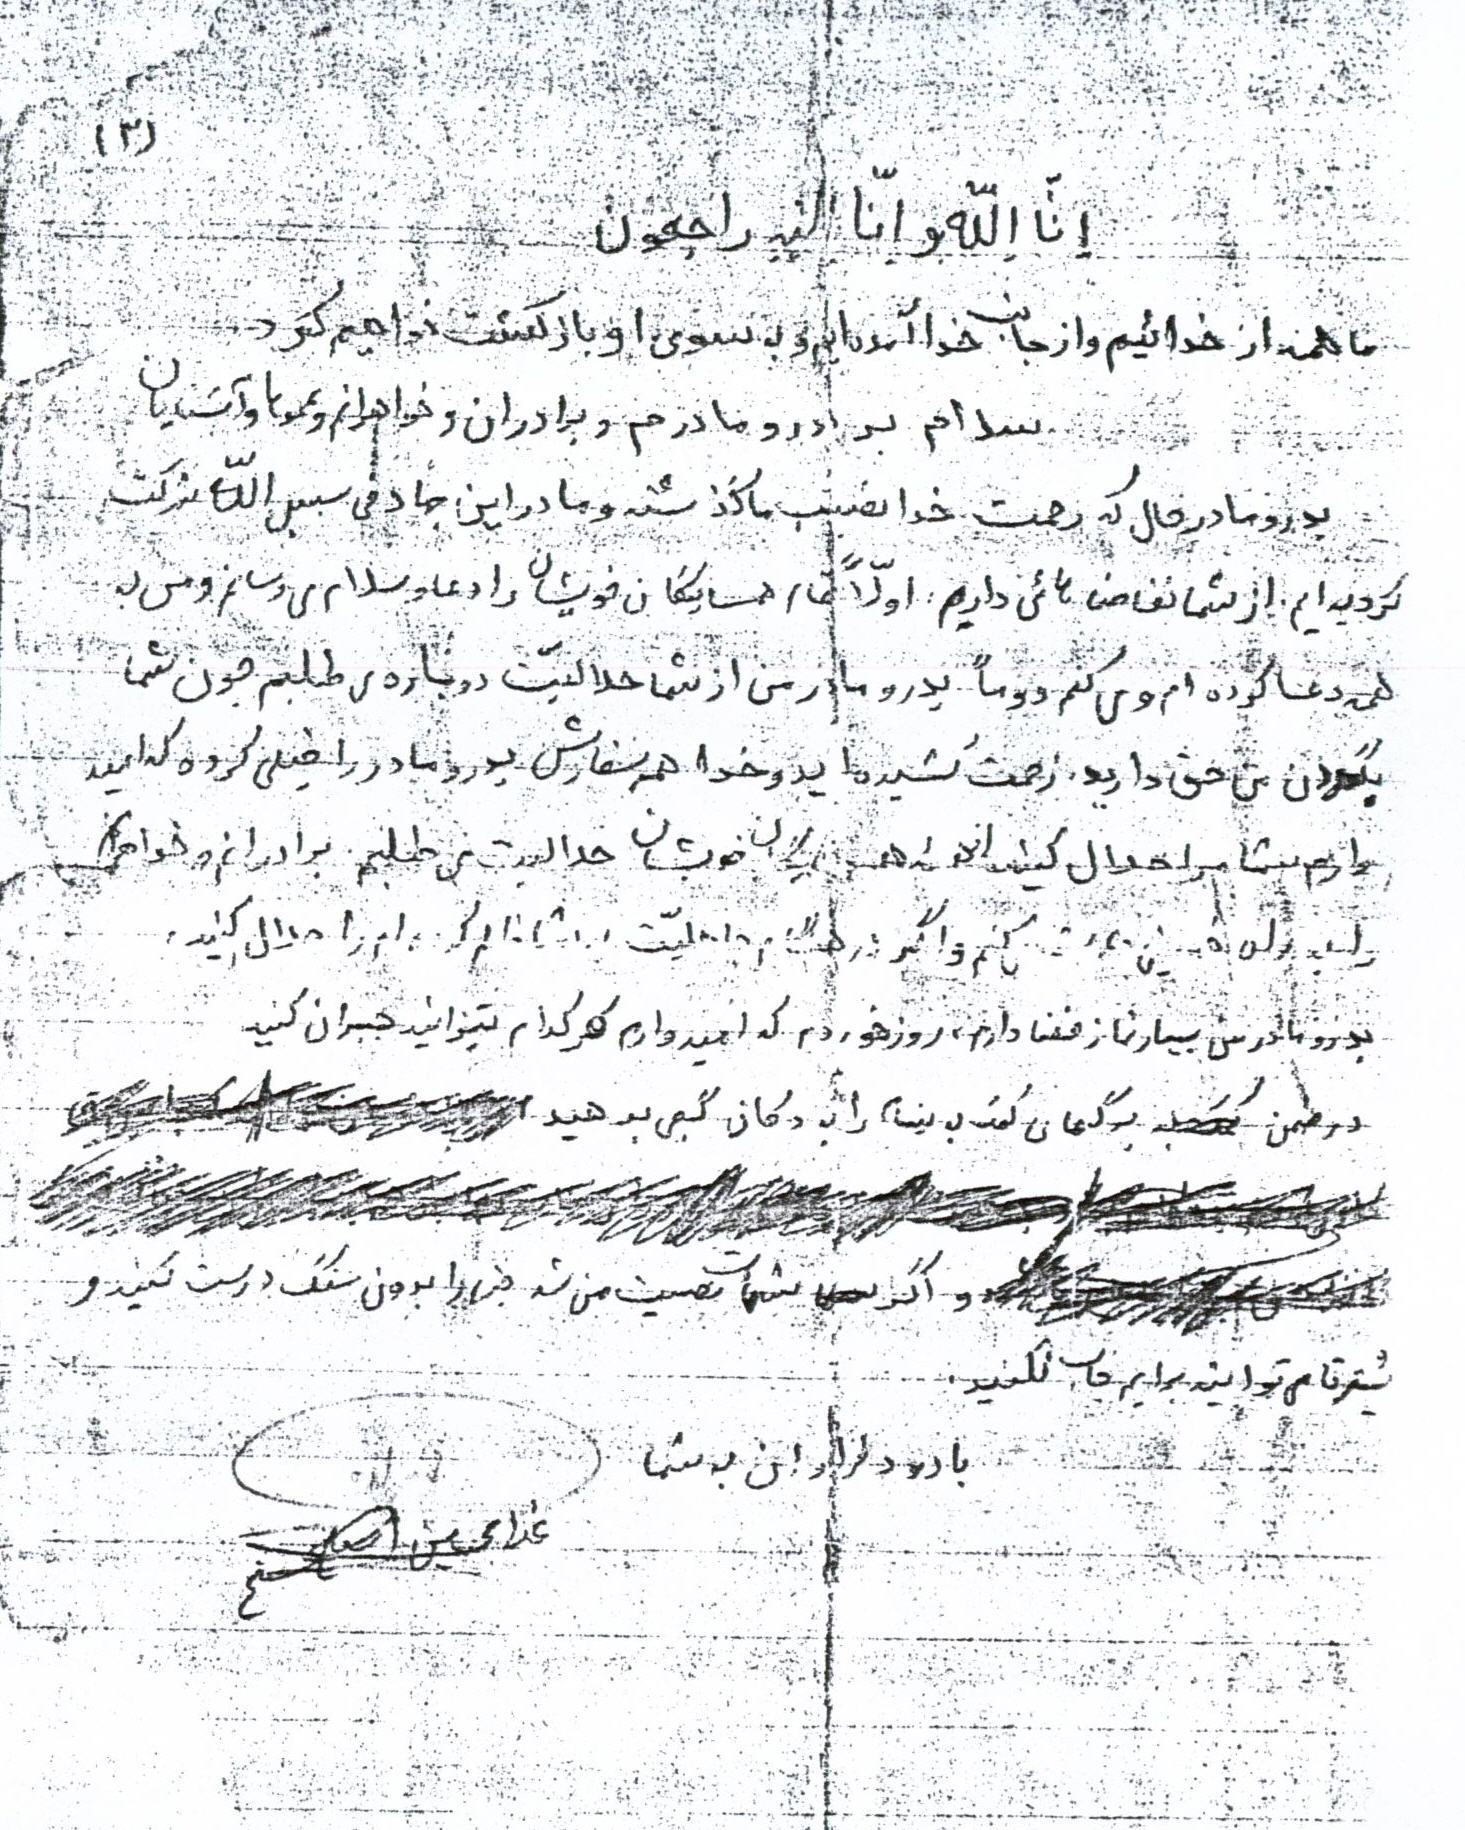 (۳)
إنّا لِلّه و إنّا الیه راجعون
ما همه از خدائیم و از جانب خدا آمده ایم و به سوی او بازگشت خواهیم کرد
سلام بر پدر و مادرم و برادران و خواهرانم و عموها و آشنایان
پدر و مادر حال که رحمت خدا نصیب ما گذشته و ما در این جهاد فی سبیل اللّه شرکت
کرده ایم. از شما تقاضا هائی داریم. اولاً تمام همسایگان خویشان را دعا و سلام می رسانم و من به
همه دعا کرده ام و می کنم دوماً پدر و مادر من از شما حلالیّت دوباره می طلبم چون شما
بگردن من حق دارید. زحمت کشیده اید و خدا هم سفارش پدر و مادر را خیلی کرده که امید
وارم شما مرا حلال کنید از همه خویشان حلالیت می طلبم. برادرانم و خواهرانم
می کنم و اگر در هنگام جاهلیّت را حلال کنید.
پدر و مادر من بسیار نماز قضا دارم، روزه خوردم که امیدوارم هر کدام بتوانید جبران کنید
در ضمن برگهای را به دکان گبی بدهید
و اگر شهادت نصیب من شد قبرم را بدون سنگ درست کنید و
تا می توانید برایم نکنید.
با درود فراوان به شما
غلامحسین